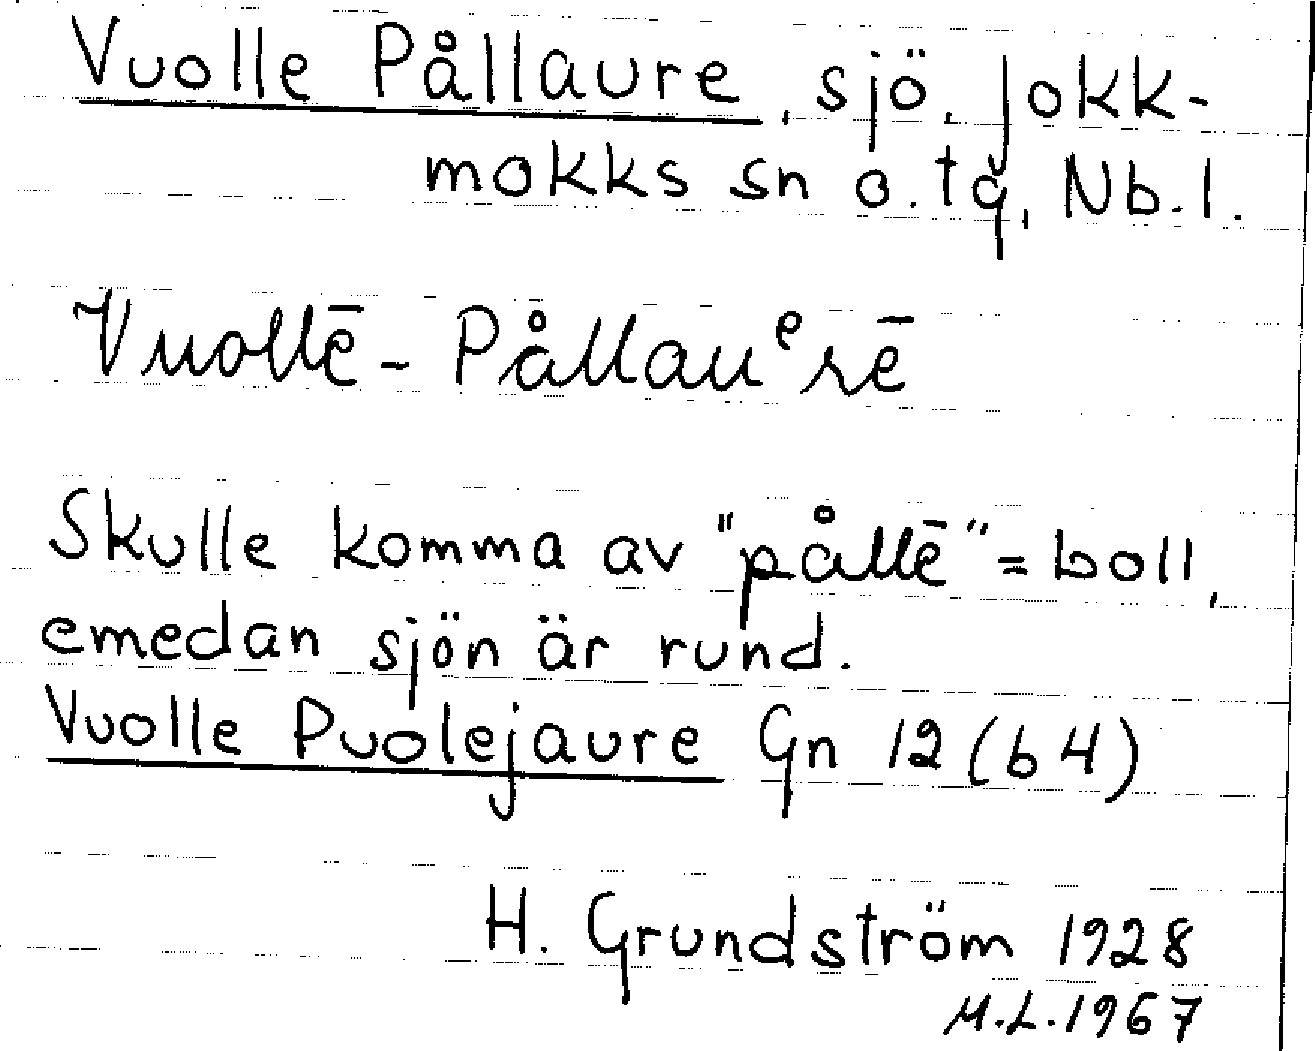 Vuolle Pållaure, sjö, Jokk-
mokks sn o. tg, Nb. l.
Vuollē - Pållauᵉrē
Skulle komma av "pållē" = boll,
emedan sjön är rund.
Vuolle Puolejaure Gn 12 (b4)
H. Grundström 1928
M.L. 1967